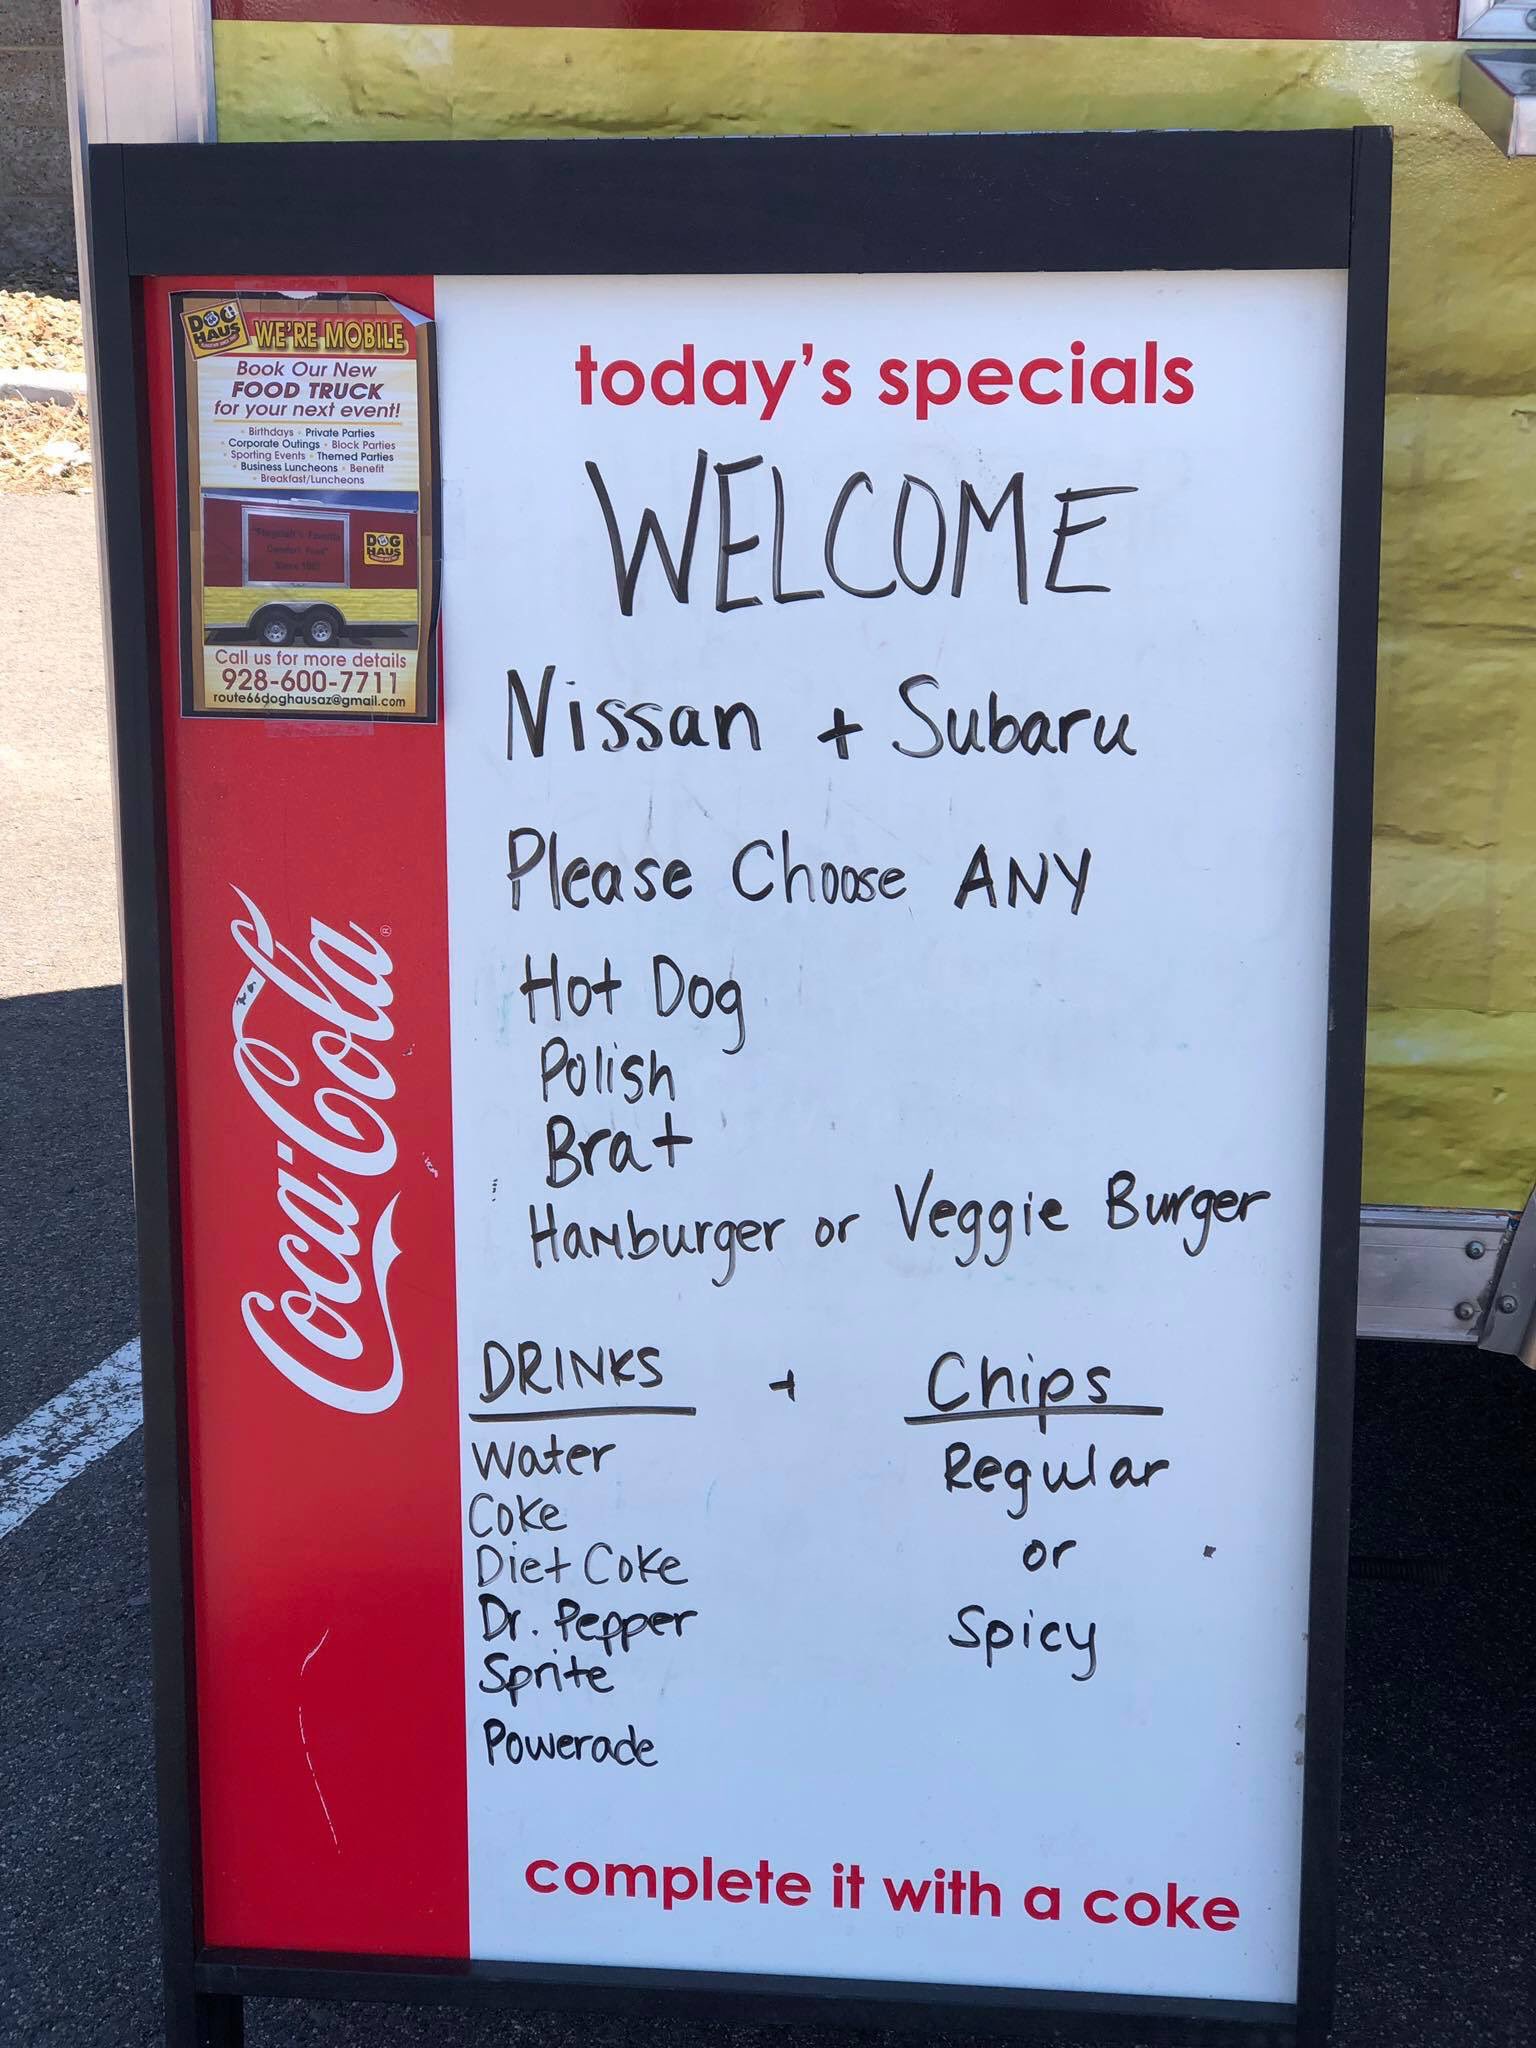 DOG
HAUS
WE'RE MOBILE
Book Our New
FOOD TRUCK
for your next event!
• Birthdays • Private Parties
• Corporate Outings • Block Parties
• Sporting Events • Themed Parties
• Business Luncheons • Benefit
• Breakfast/Luncheons
DOG
HAUS
Call us for more details
928-600-7711
route66doghausaz@gmail.com
Coca-Cola®
today's specials
WELCOME
Nissan + Subaru
Please Choose ANY
Hot Dog
Polish
Brat
Hamburger or Veggie Burger
DRINKS + Chips
Water
Coke
Diet Coke
Dr. Pepper
Sprite
Powerade
Regular
or
Spicy
complete it with a coke